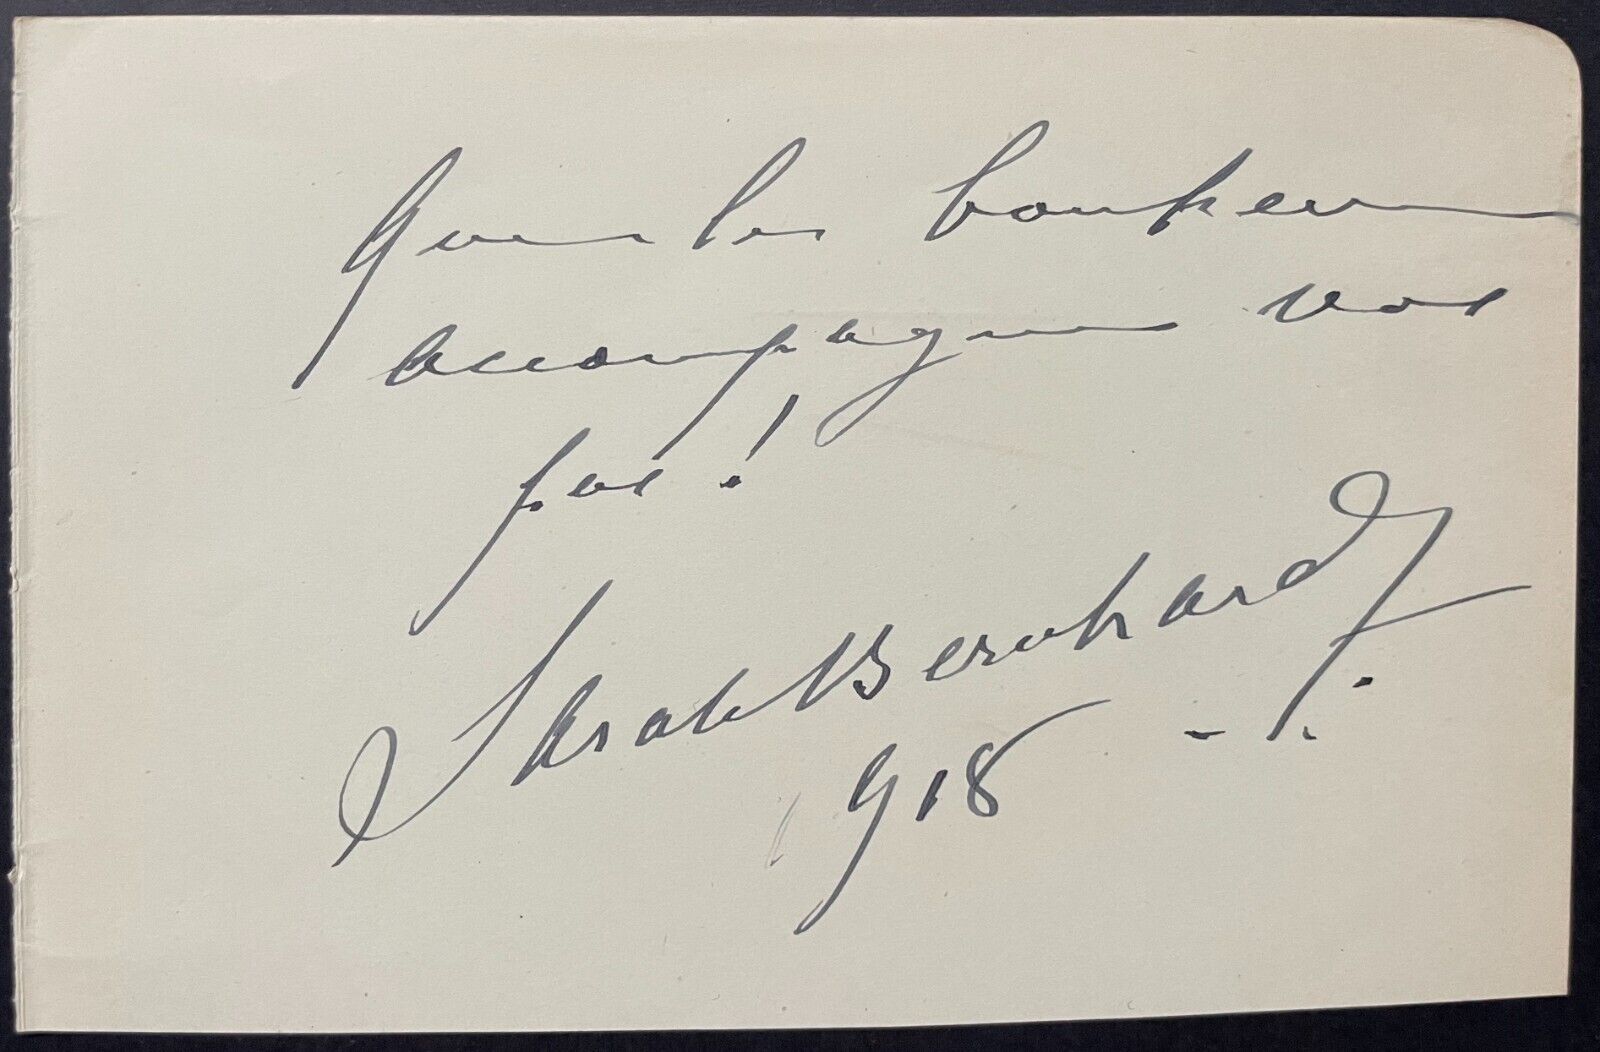 Que le bonheur
accompagne vos
pas!
Sarah Bernhardt
1918